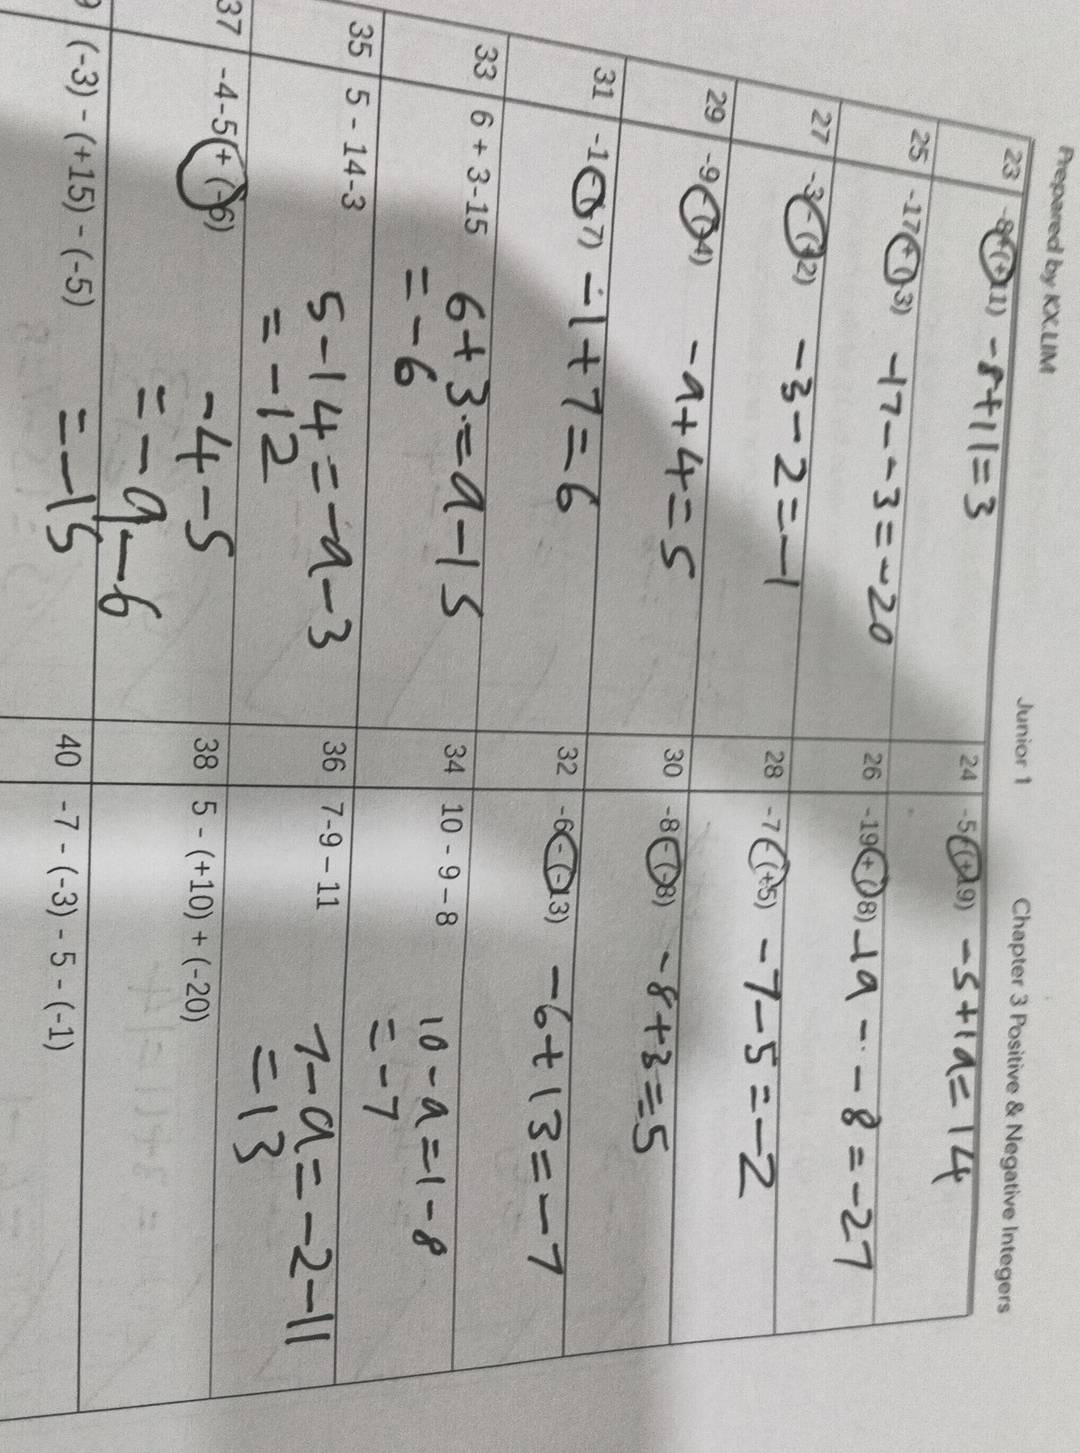 Prepared by KX.LIM Junior 1 Chapter 3 Positive & Negative Integers
23 -8+(+11) -8+11=3
24 -5+(+19) -5+19=14
25 -17+(-3) -17--3=-20
26 -19+(-8) -19--8=-27
27 -3-(+2) -3-2=-1
28 -7-(+5) -7-5=-2
29 -9-(-4) -9+4=5
30 -8-(-8) -8+3=5
31 -1-(-7) -1+7=6
32 -6-(-13) -6+13=-7
33 6 + 3-15 6+3=9-15
=-6
34 10 - 9 – 8 10-9=1-8
=-7
35 5 - 14-3 5-14=-9-3
=-12
36 7-9 – 11 7-9=-2-11
=-13
37 -4-5+(-6) -4-5
=-9-6
=-15
38 5 - (+10) + (-20)
(-3) - (+15) - (-5)
40 -7 - (-3) - 5 - (-1)